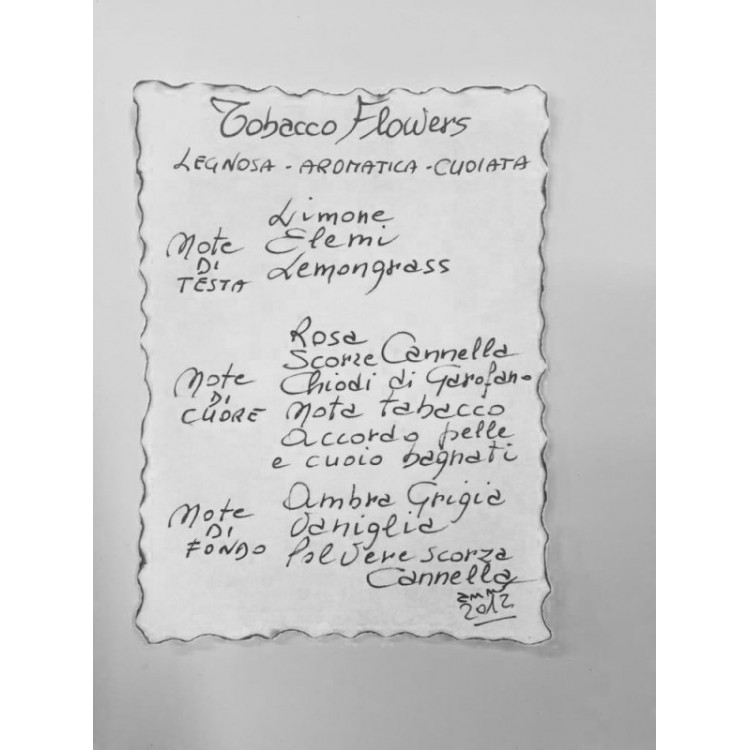 Tobacco Flowers
LEGNOSA - AROMATICA - CUOIATA
Note
DI
TESTA
Limone
Elemi
Lemongrass
Note
DI
CUORE
Rosa
Scorze Cannella
Chiodi di Garofano
Nota tabacco
accordo pelle
e cuoio bagnati
Note
DI
FONDO
Ambra Grigia
Vaniglia
Polvere scorza
Cannella
2012